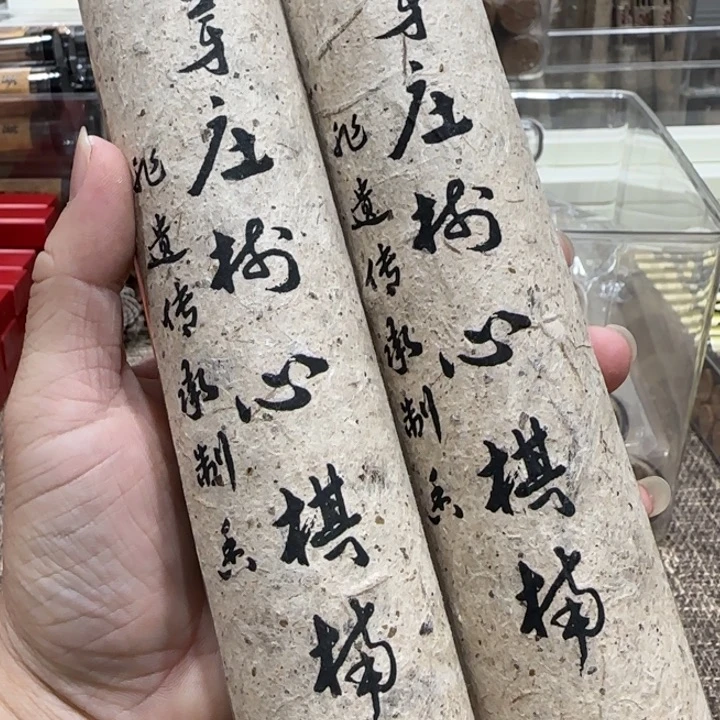 芽庄树心棋楠
非遗传承制香
芽庄树心棋楠
非遗传承制香